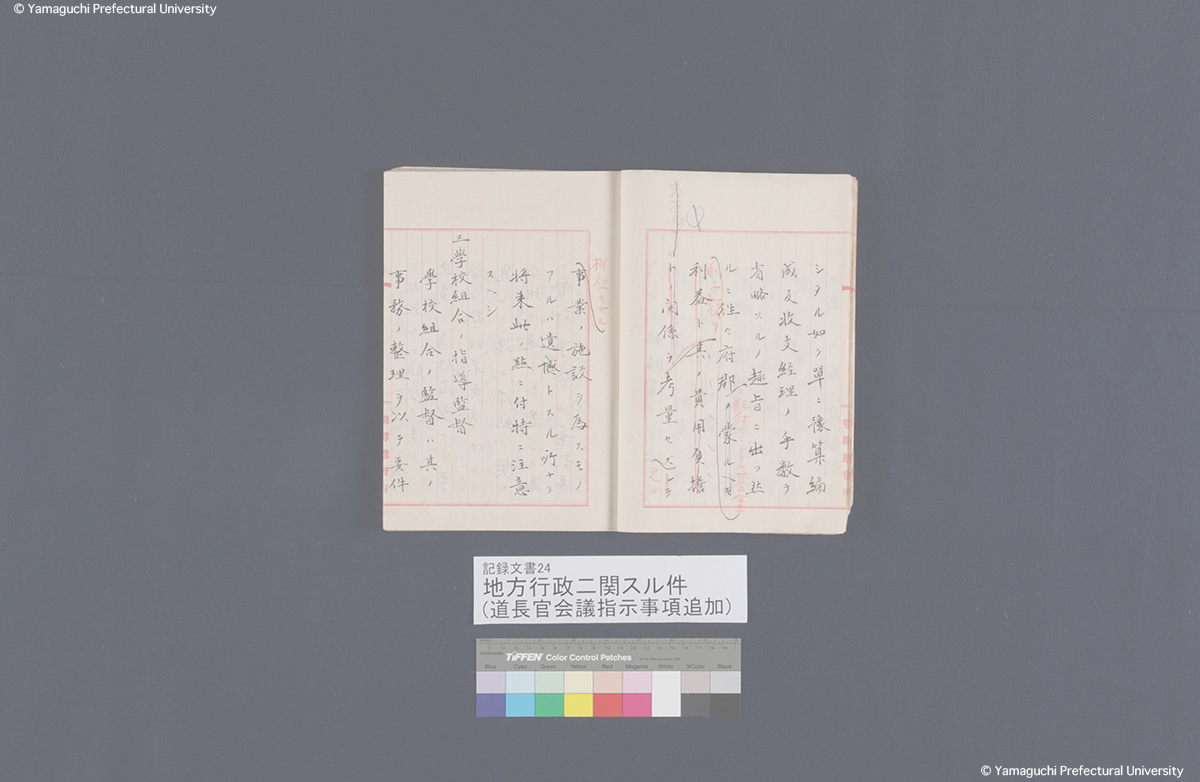 © Yamaguchi Prefectural University
シタル如ク單ニ豫算編
成及收支経理ノ手数ヲ
省略スルノ趣旨ニ出ツ然
ルニ往々府郡ノ蒙ル
利益ト其ノ費用負擔
ト関係ヲ考量セ
事業ノ施設ヲ為スモノ
アルハ遺憾トスル所ナリ
将来此ノ点ニ付特ニ注意
スヘシ
三学校組合ノ指導監督
学校組合ノ監督ハ其ノ
事務ノ整理ヲ以テ要件
記録文書24
地方行政ニ関スル件
(道長官会議指示事項追加)
TIFFEN Color Control Patches
Blue Cyan Green Yellow Red Magenta White 3/Color Black
© Yamaguchi Prefectural University